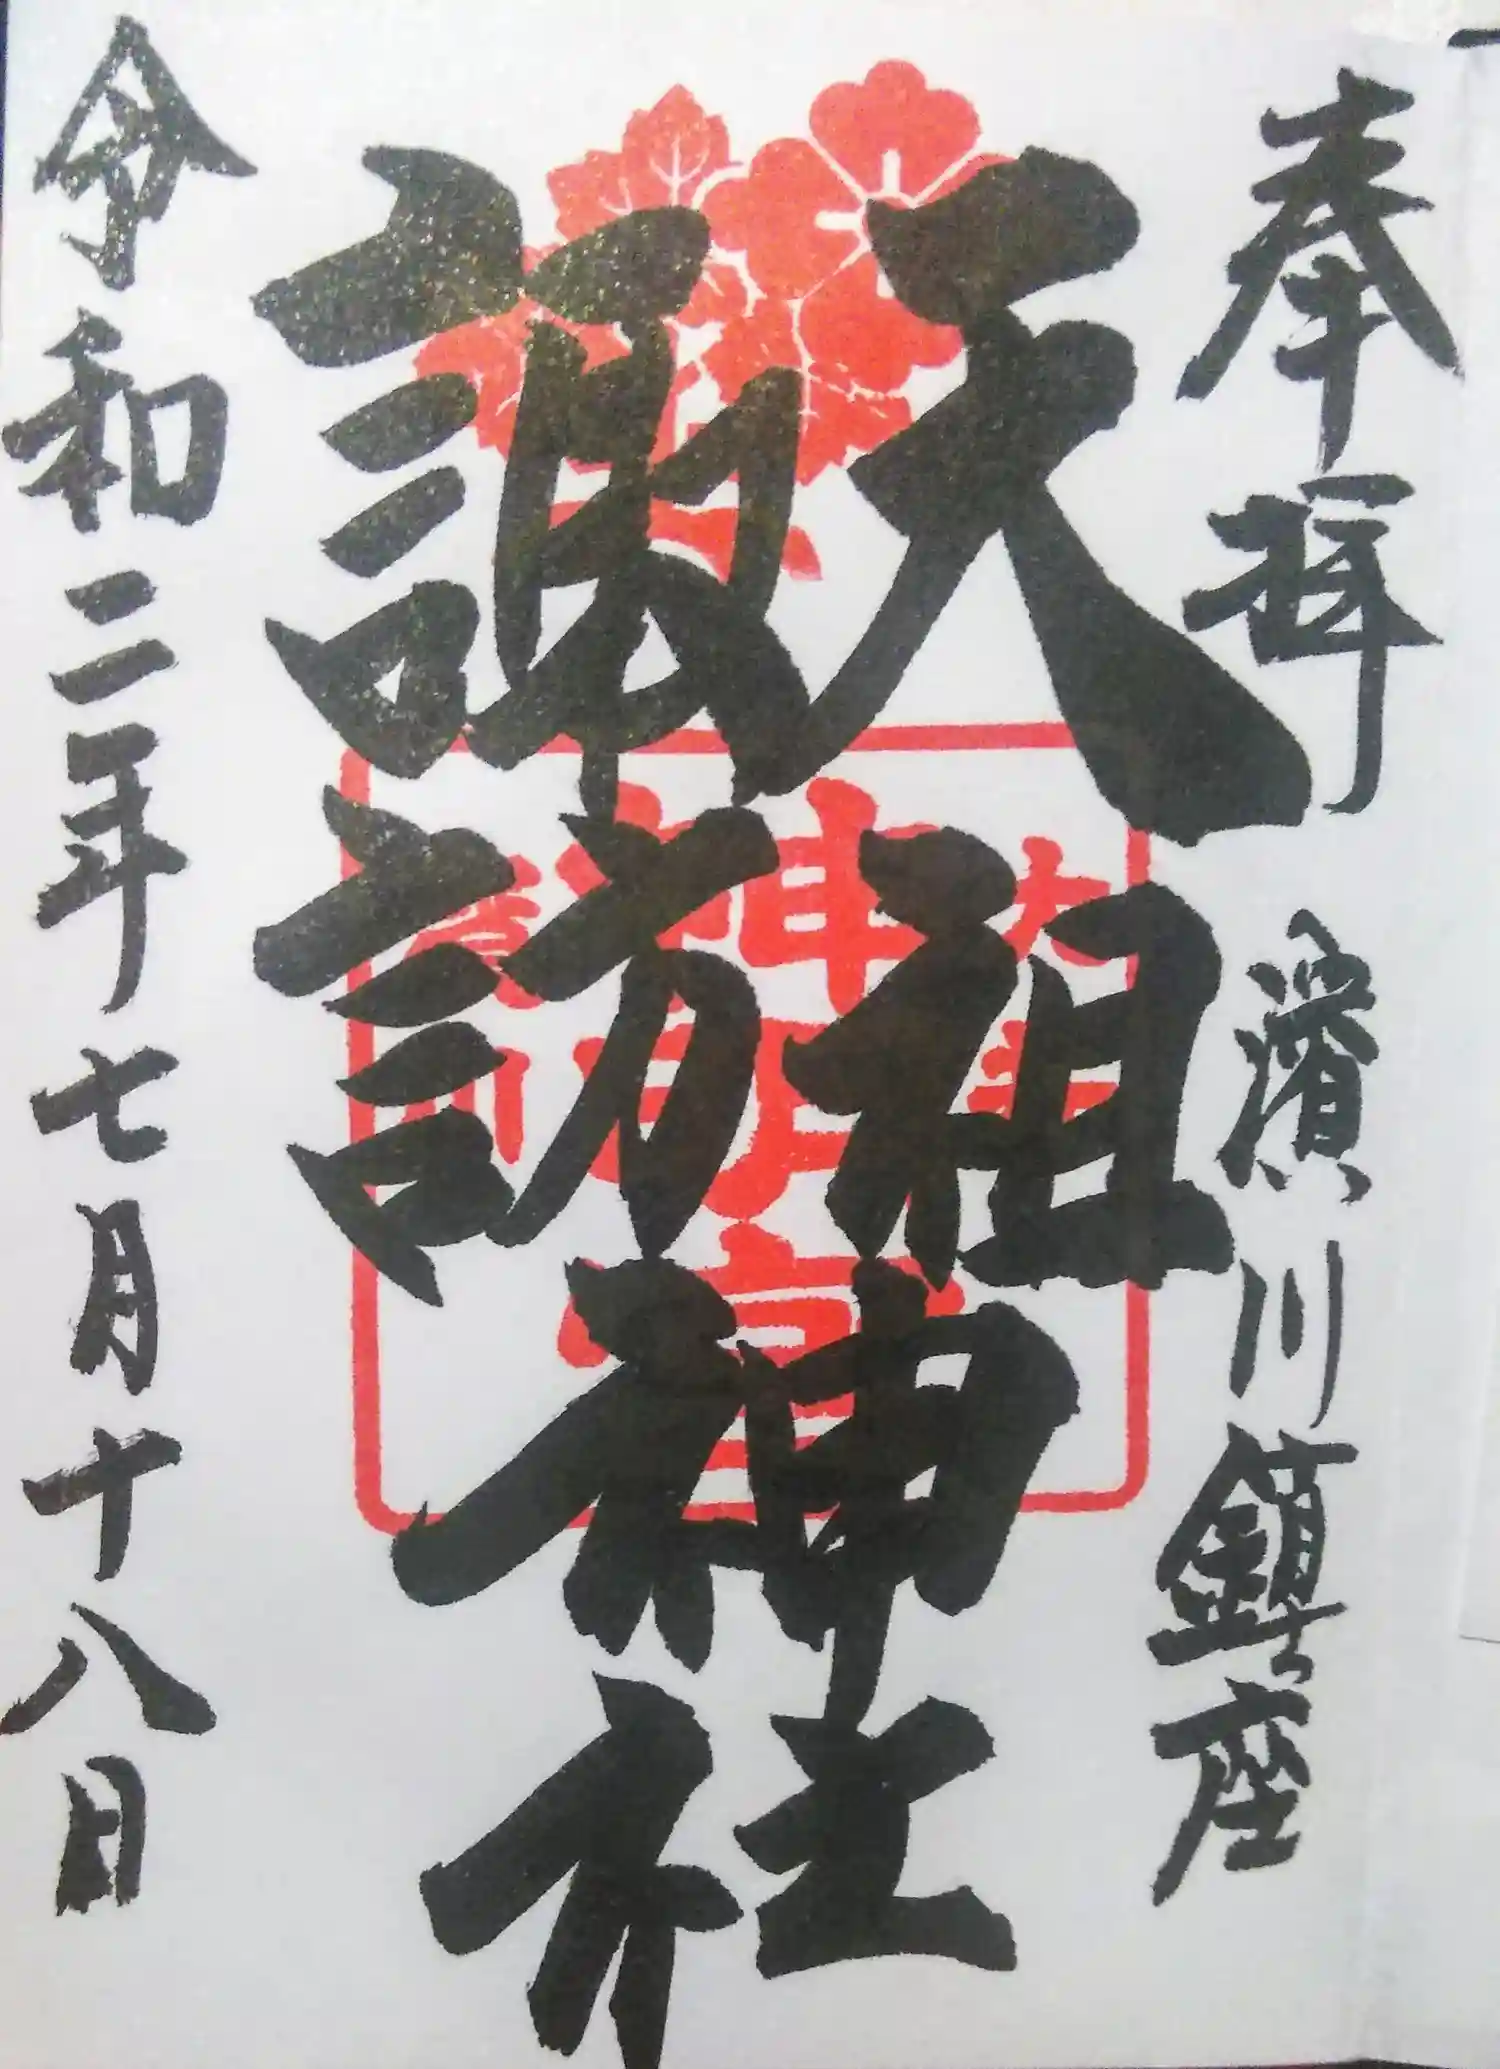 奉拝 濱川鎮座
天祖
諏訪
神社
令和二年七月十八日